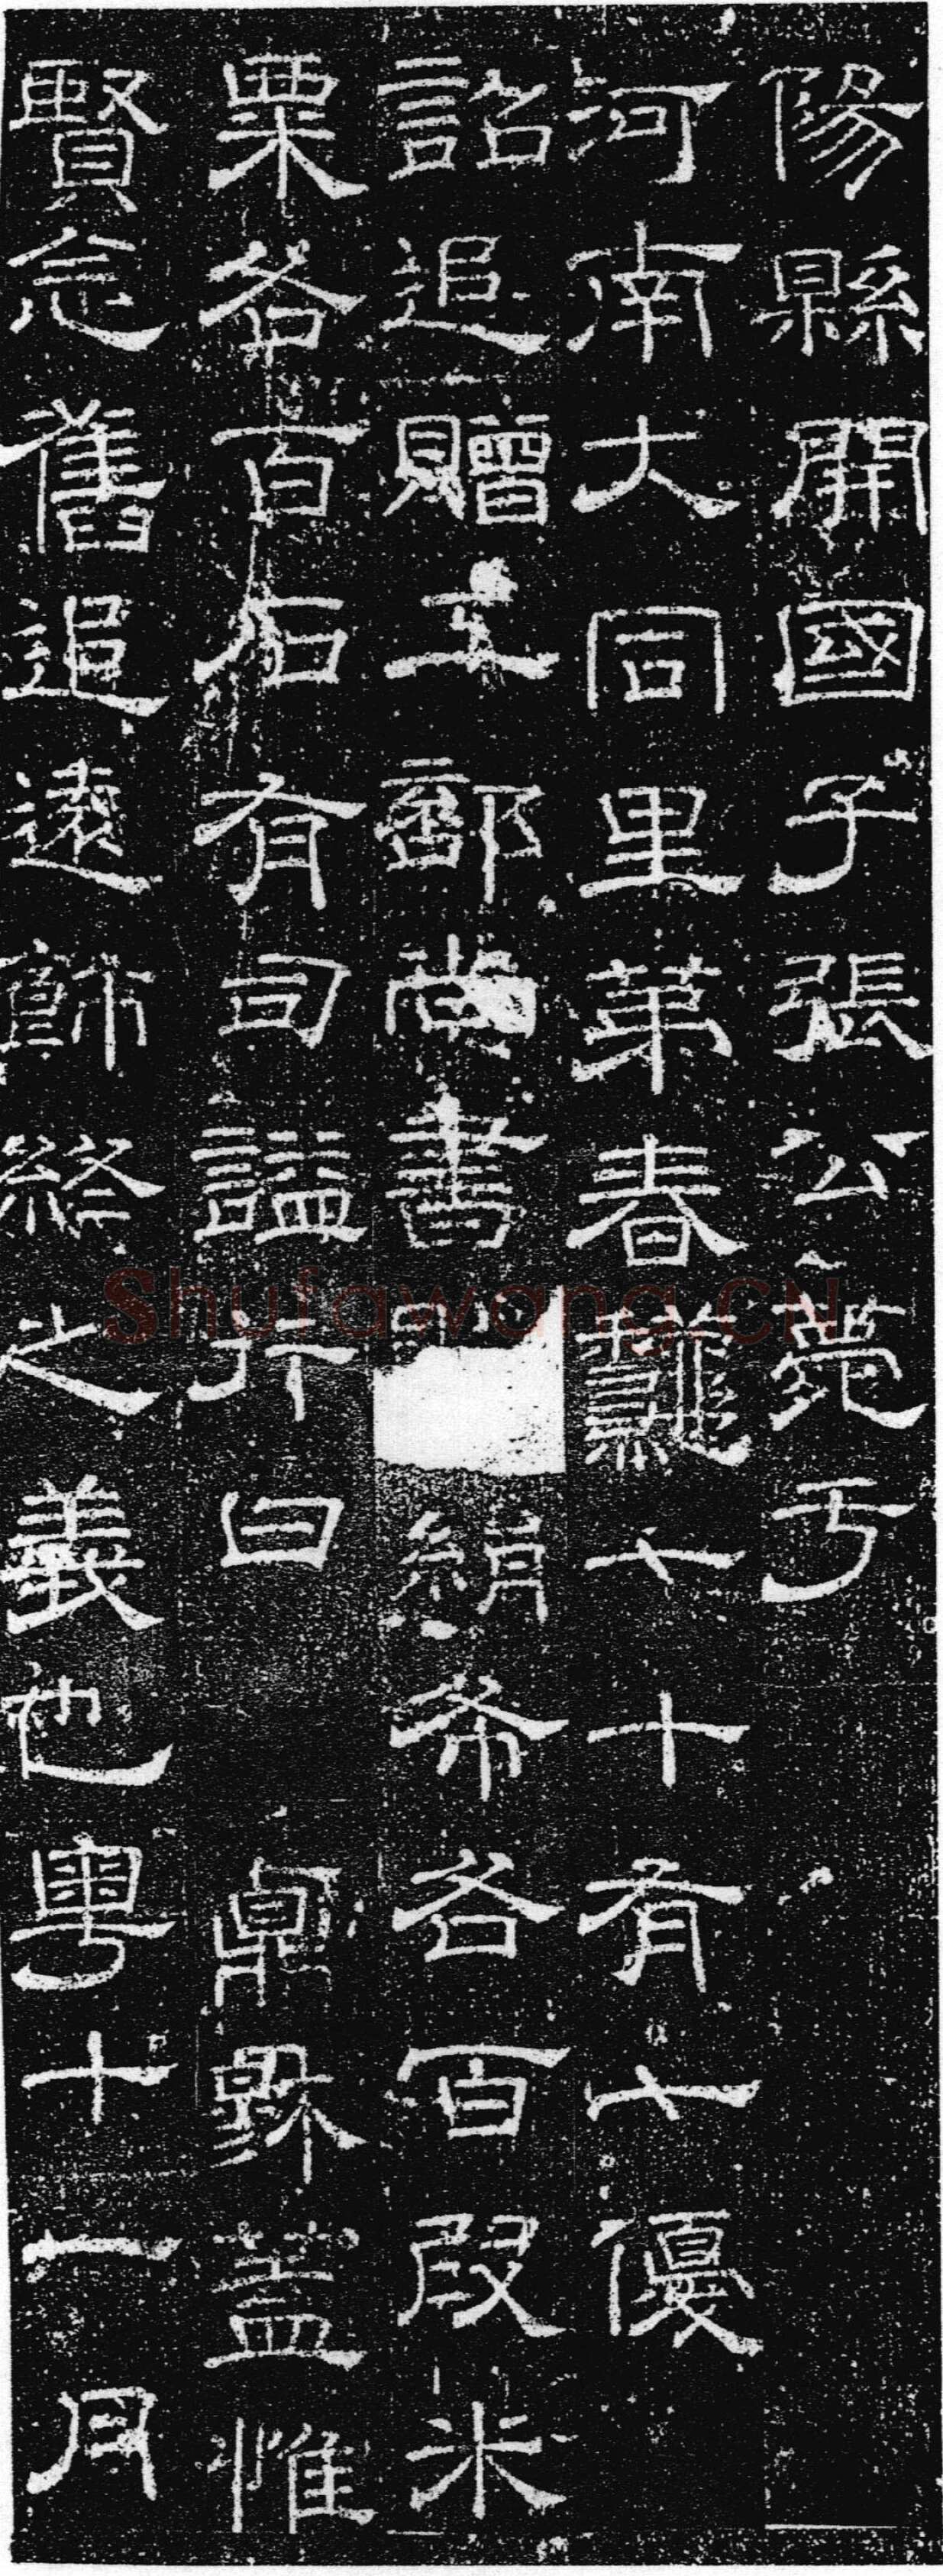 陽縣開國子張公薨于
河南大同里第春龝七十有七優
詔追贈工部尚書絹布各百段米
粟各百石有司謚行曰貞穆蓋惟
賢念舊追遠飾終之義也粵十一月
Shufawang.CN